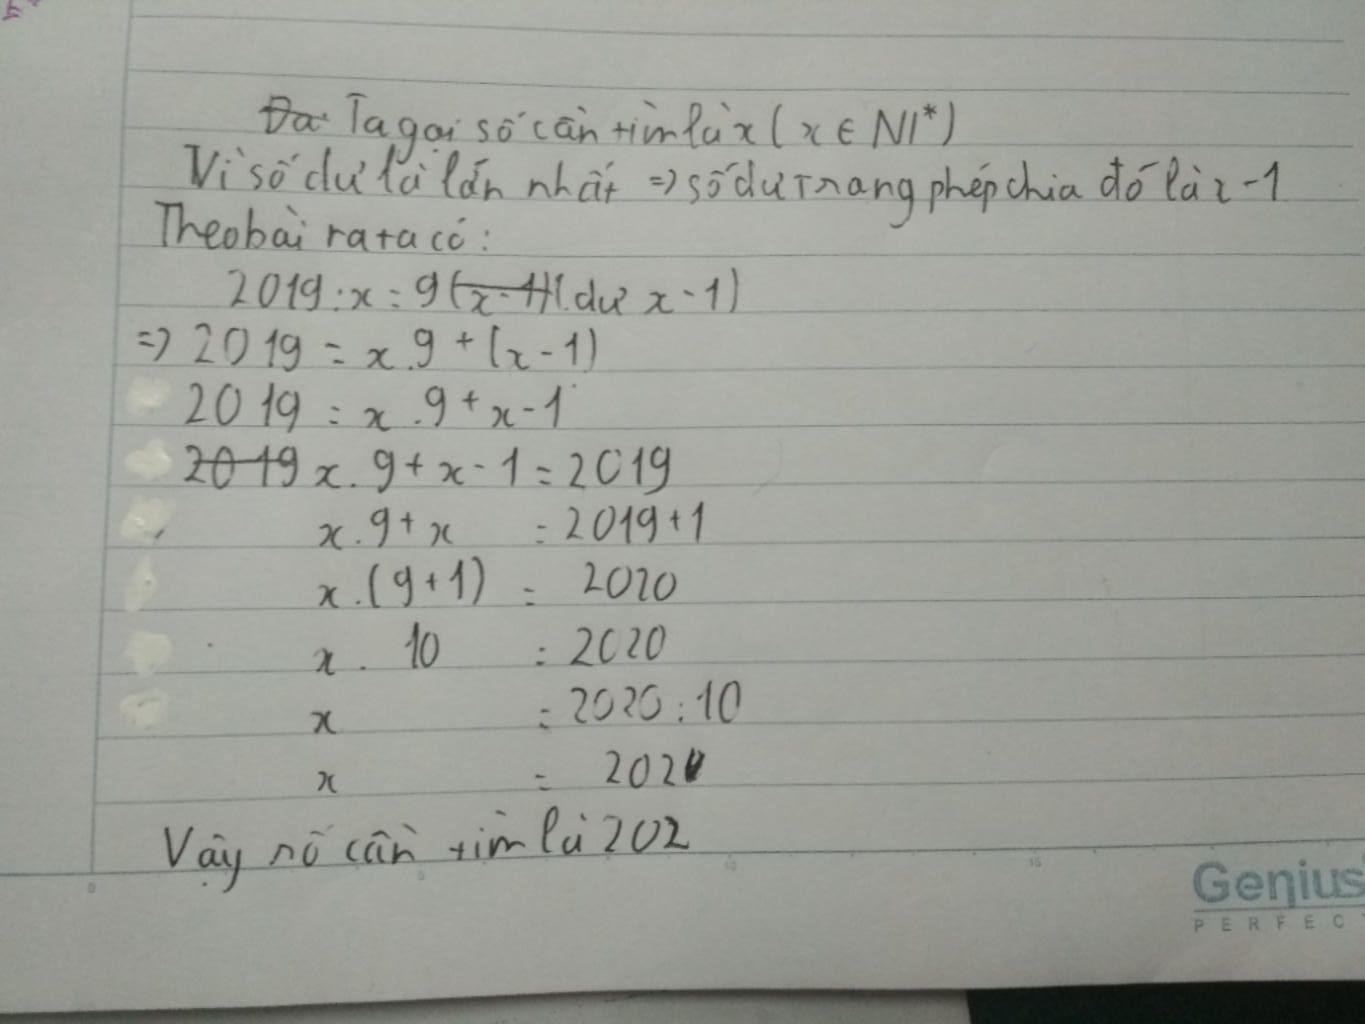 Đa Ta gọi số cần tìm là x ( x ∈ N* )
Vì số dư là lớn nhất => số dư trong phép chia đó là x - 1
Theo bài ra ta có :
2019 : x = 9 (x - 1) ( dư x - 1 )
=> 2019 = x . 9 + ( x - 1 )
2019 = x . 9 + x - 1
2019 x . 9 + x - 1 = 2019
x . 9 + x = 2019 + 1
x . ( 9 + 1 ) = 2020
x . 10 = 2020
x = 2020 : 10
x = 202
Vậy số cần tìm là 202
0 5 10 15
Genius
PERFEC